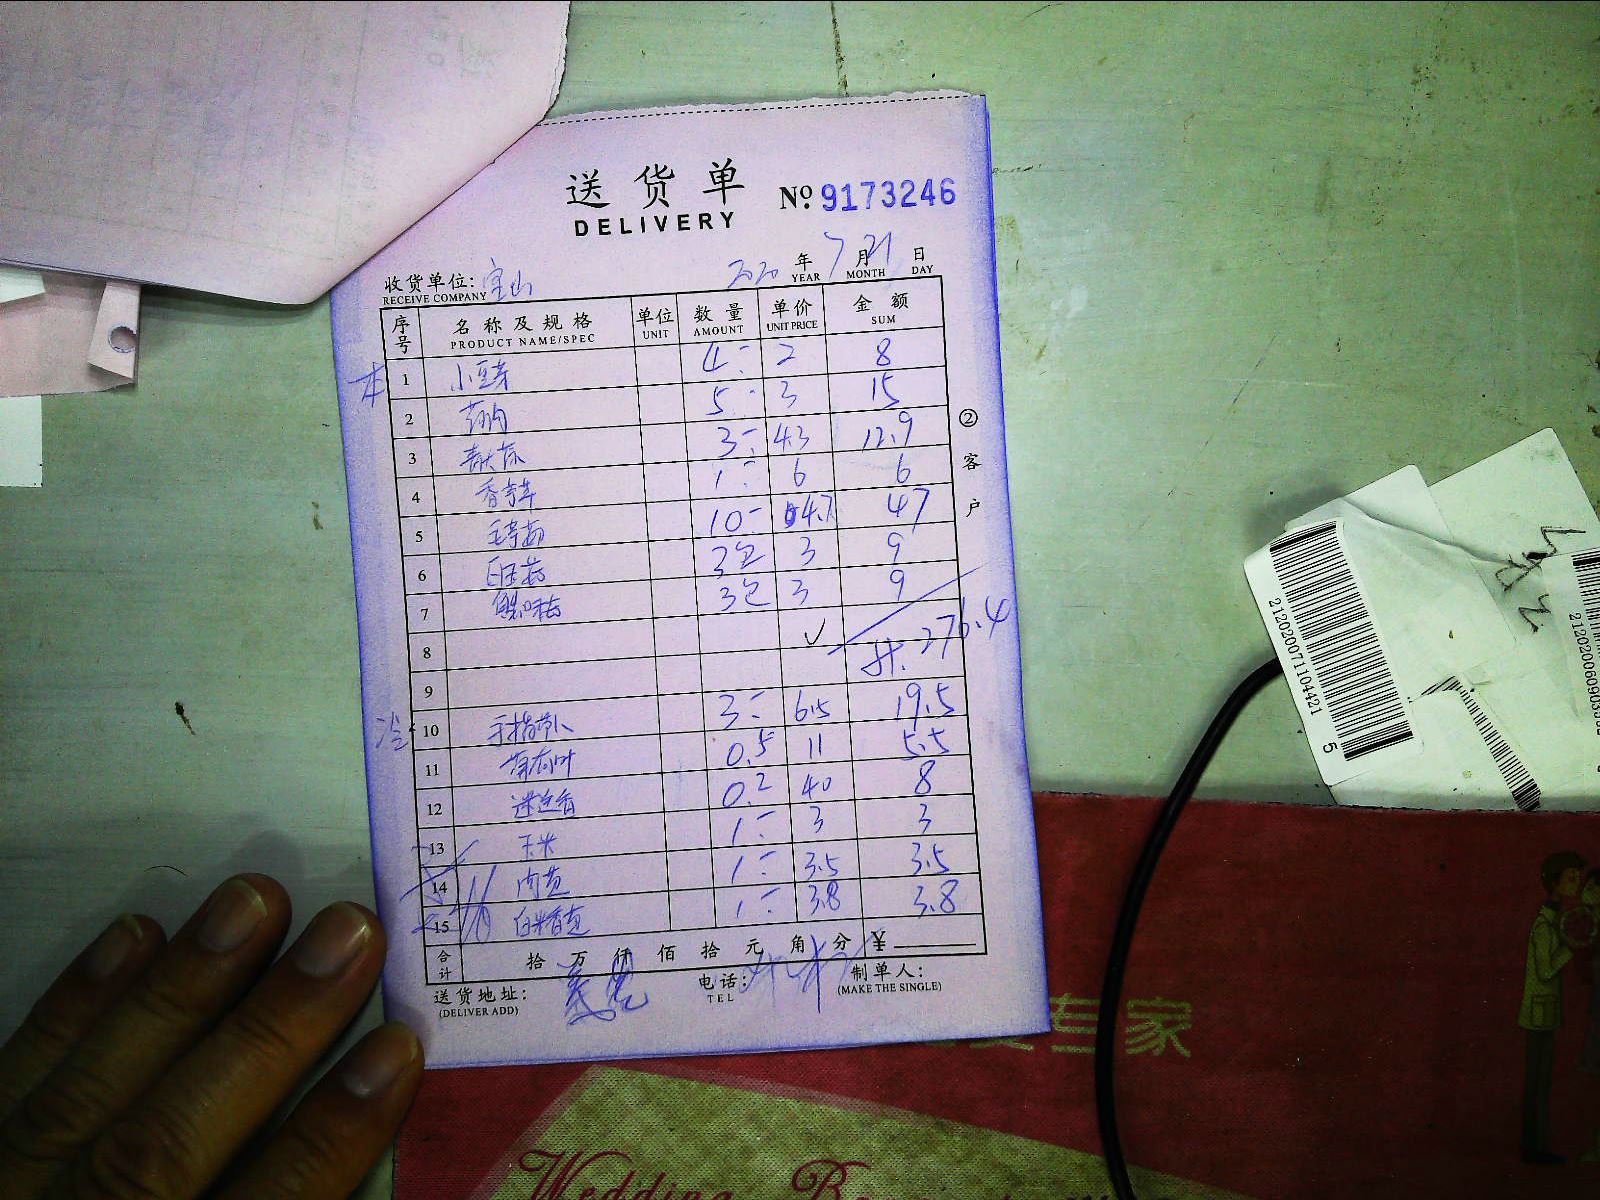 送货单
DELIVERY
№ 9173246
收货单位: 宝山 2020 年 7 月 21 日
RECEIVE COMPANY YEAR MONTH DAY
序号 名称及规格 单位 数量 单价 金额
PRODUCT NAME/SPEC UNIT AMOUNT UNIT PRICE SUM
本 1 小豆芽 4 2 8
2 5 3 15
3 3 4.3 12.9
4 1 6 6
5 10 4.7 47
6 3包 3 9
7 3包 3 9
8 ✓
9 计. 276.4
冷 10 手指萝卜 3 6.5 19.5
11 0.5 11 5.5
12 迷迭香 0.2 40 8
13 玉米 1 3 3
14 1 3.5 3.5
15 1 3.8 3.8
合计 拾 万 仟 佰 拾 元 角 分 ¥
送货地址: 电话: 制单人:
(DELIVER ADD) TEL (MAKE THE SINGLE)
② 客户
2120200711044215
专家
Wedding